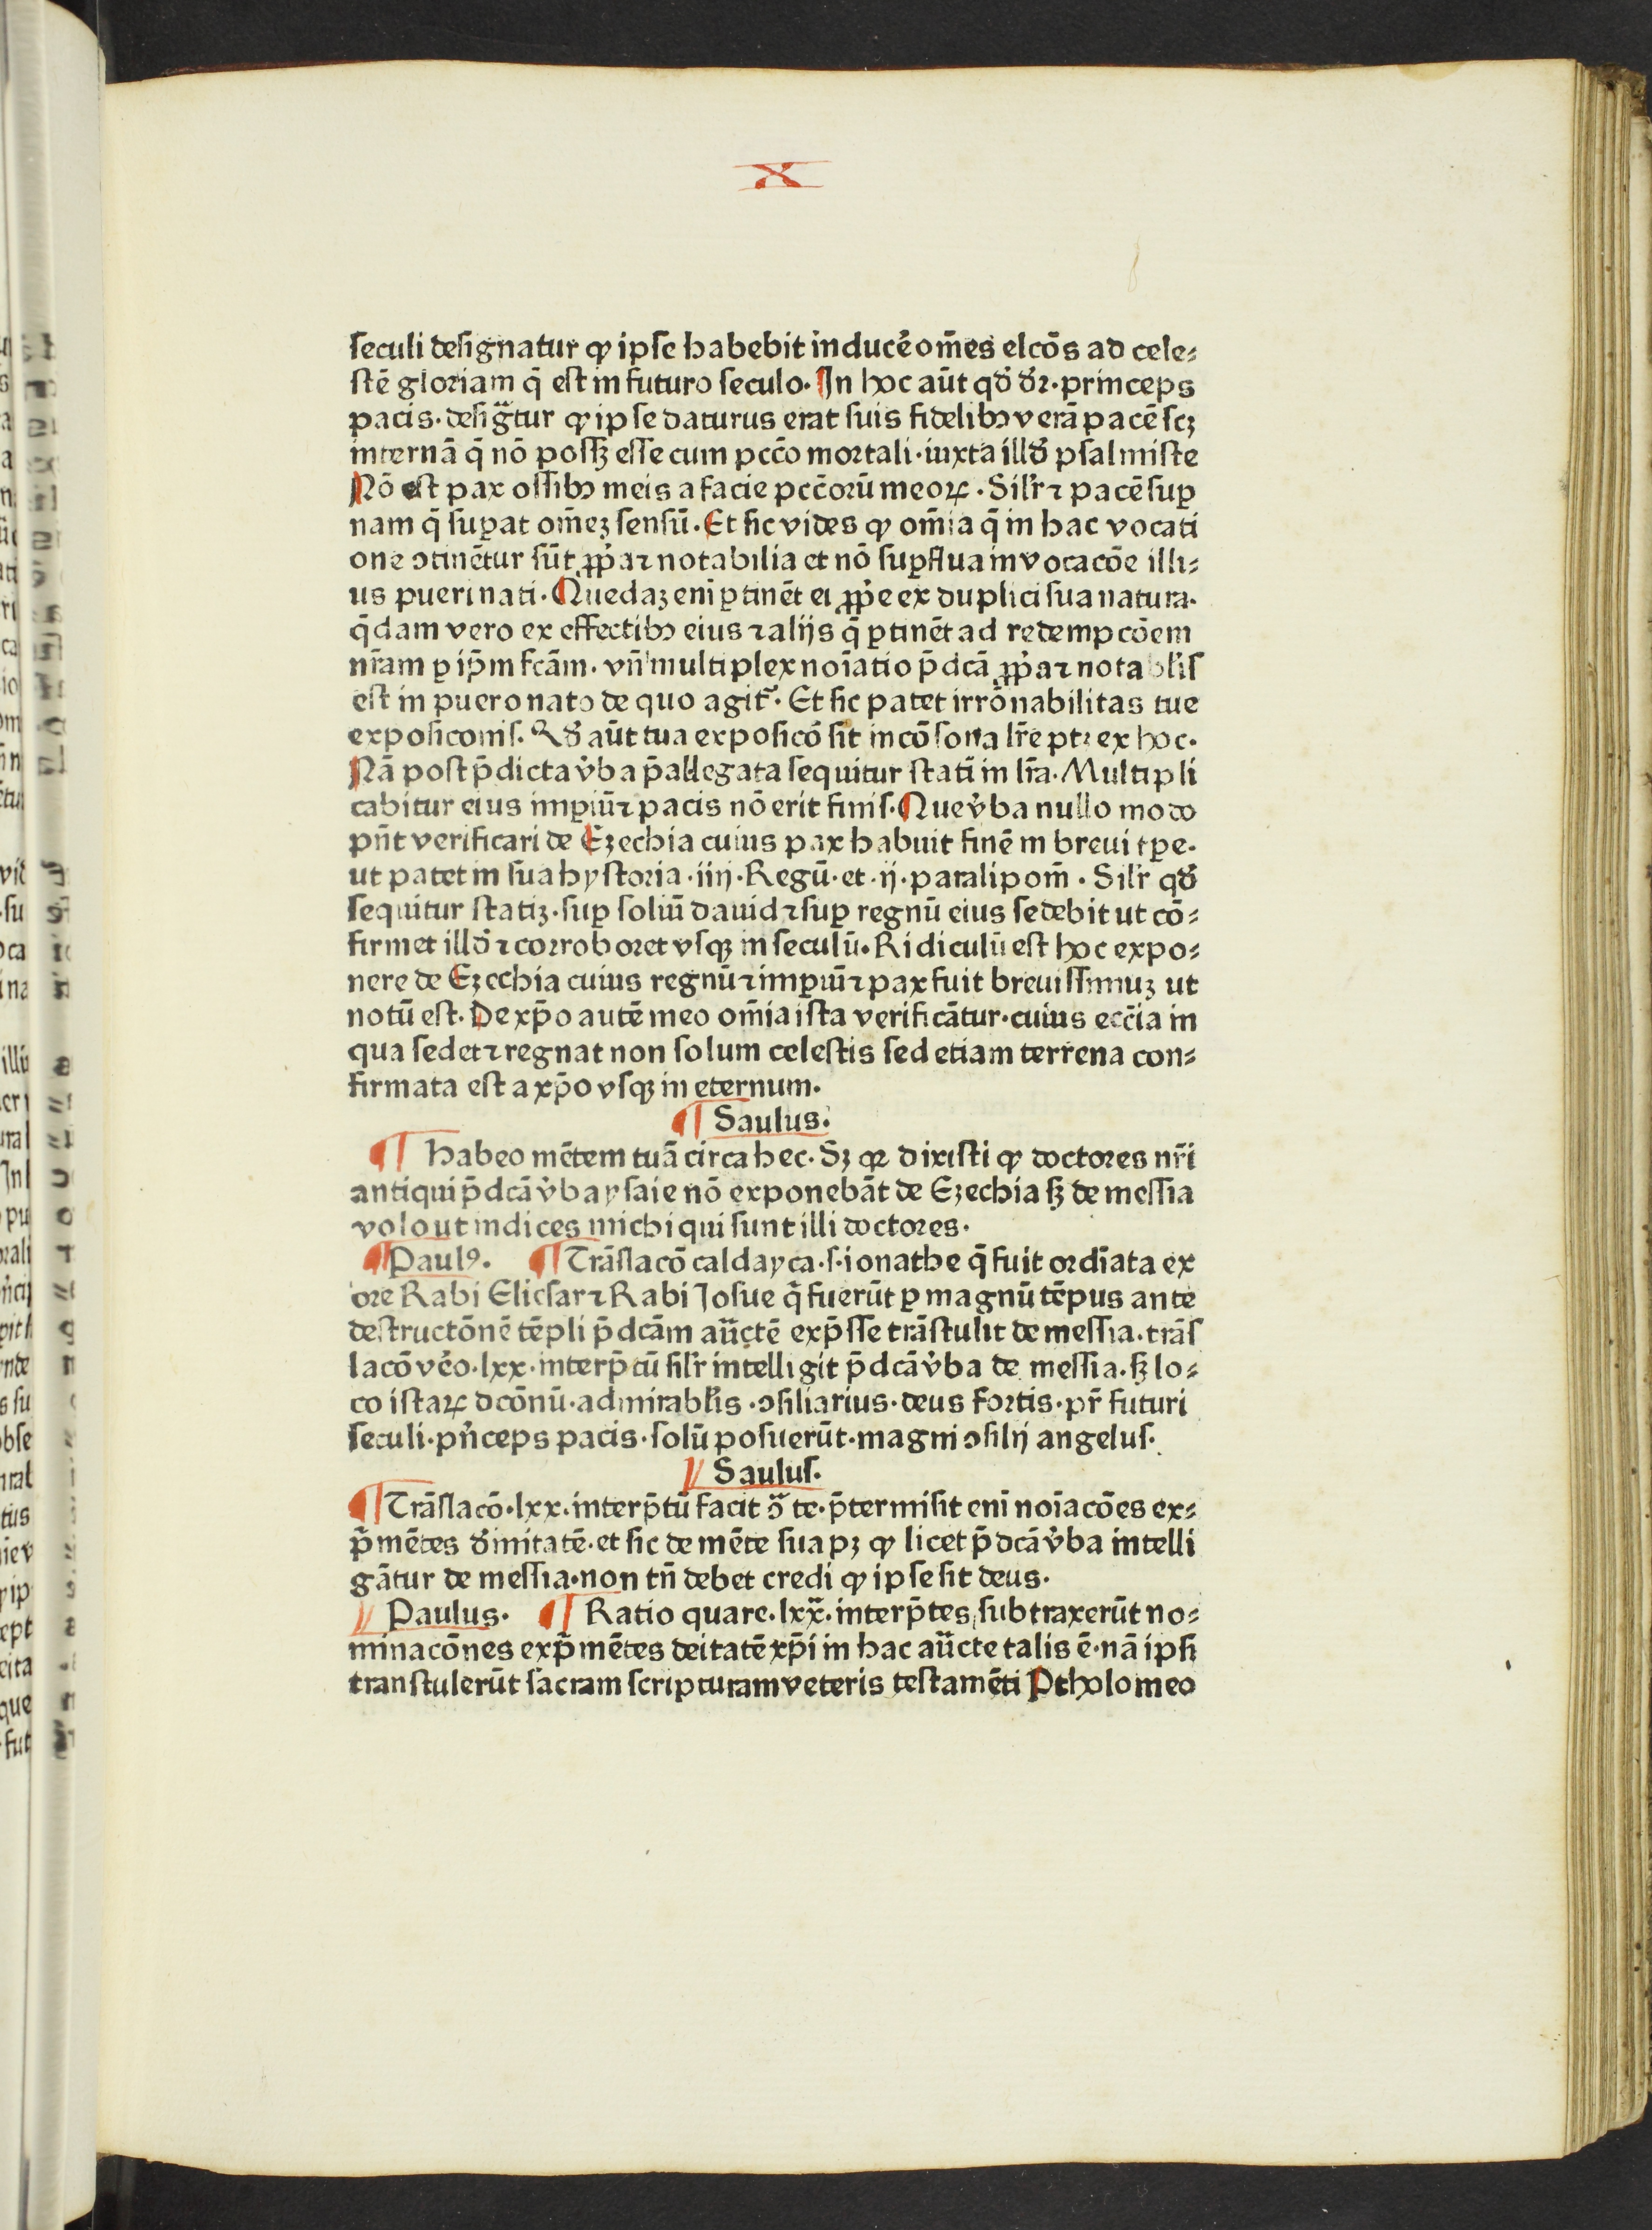 X
seculi designatur ꝙ ipse habebit inducẽ om̃es elcõs ad cele⸗
stē gloriam q̄ est in futuro seculo. In hoc aūt qđ dr̄. princeps
pacis. desigᷓtur ꝙ ipse daturus erat suis fidelibꝫ verā pacē scꝫ
internā q̄ nō possꝫ esse cum pcc̄o mortali. iuxta illđ psalmiste
Nō est pax ossibꝫ meis a facie pcc̄orū meoꝝ. Silr̄ ⁊ pacē suꝑ
nam q̄ suꝑat om̄eꝫ sensū. Et sic vides ꝙ om̄ia q̄ in hac vocati
one ↄtinētur sūt ꝓp̄a ⁊ notabilia et nō suꝑflua in vocacōe illi⸗
us pueri nati. Quedaꝫ eni ꝑtinēt ei ꝓp̄e ex duplici sua natura.
q̄dam vero ex effectibꝫ eius ⁊ alijs q̄ ꝑtinēt ad redempcōem
nr̄am ꝑ ip̄m fcām. vn̄ multiplex noīatio p̄dcā ꝓp̄a ⁊ notabl̄is
est in puero nato de quo agit᷑. Et sic patet irrōnabilitas tue
exposiconis. Qđ aūt tua exposicō sit incōsona lr̄e ptꝫ ex hoc.
Nā post p̄dicta v̓ba p̄allegata sequitur statī in lr̄a. Multipli
cabitur eius imꝑiū ⁊ pacis nō erit finis. Que v̓ba nullo modo
pn̄t verificari de Ezechia cuius pax habuit finē in breui tꝑe.
ut patet in sua hystoria .iiij. Regū. et .ij. paralipom̄. Silr̄ qđ
sequitur statiꝫ. suꝑ soliū dauid ⁊ suꝑ regnū eius sedebit ut cō⸗
firmet illđ ⁊ corroboret vsqꝫ in seculū. Ridiculū est hoc expo⸗
nere de Ezechia cuius regnū ⁊ imꝑiū ⁊ pax fuit breuissimuꝫ ut
notū est. De xp̄o autē meo om̄ia ista verificātur. cuius ecc̄ia in
qua sedet ⁊ regnat non solum celestis sed etiam terrena con⸗
firmata est a xp̄o vsqꝫ in eternum.
¶ Saulus.
¶ Habeo mētem tuā circa hec. Sꝫ qꝛ dixisti ꝙ doctores nr̄i
antiqui p̄dcā v̓ba ysaie nō exponebāt de Ezechia sꝫ de messia
volo ut indices michi qui sunt illi doctores.
¶ Paulꝰ. ¶ Trāslacō caldayca .s. ionathe q̄ fuit ordīata ex
ore Rabi Eliesar ⁊ Rabi Josue q̄ fuerūt ꝑ magnū tēpus ante
destructōnē tēpli p̄dcām auc̄tē exp̄sse trāstulit de messia. trās
lacō vēo .lxx. interp̄tū silr̄ intelligit p̄dcā v̓ba de messia. sꝫ lo⸗
co istaꝝ dcōnū. admirabl̄is. ↄsiliarius. deus fortis. pr̄ futuri
seculi. pn̄ceps pacis. solū posuerūt. magni ↄsilij angelus.
¶ Saulus.
¶ Trāslacō .lxx. interp̄tū facit ↄᷓ te. p̄termisit eni noīacōes ex⸗
p̄mētes đinitatē. et sic de mēte sua pꝫ ꝙ licet p̄dcā v̓ba intelli
gātur de messia. non tn̄ debet credi ꝙ ipse sit deus.
¶ Paulus. ¶ Ratio quare .lxxᷓ. interp̄tes subtraxerūt no⸗
minacōnes exp̄mētes deitatē xp̄i in hac auc̄te talis ē. nā ipsi
transtulerūt sacram scripturam veteris testamēti Ptholomeo